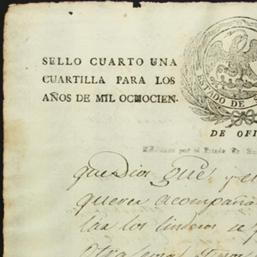 SELLO CUARTO UNA
CUARTILLA PARA LOS
AÑOS DE MIL OCHOCIEN-
ESTADO DE S
DE OFI
por el Estado de
que Dios gue. y el
querer acompaña
las los linderos de
otra